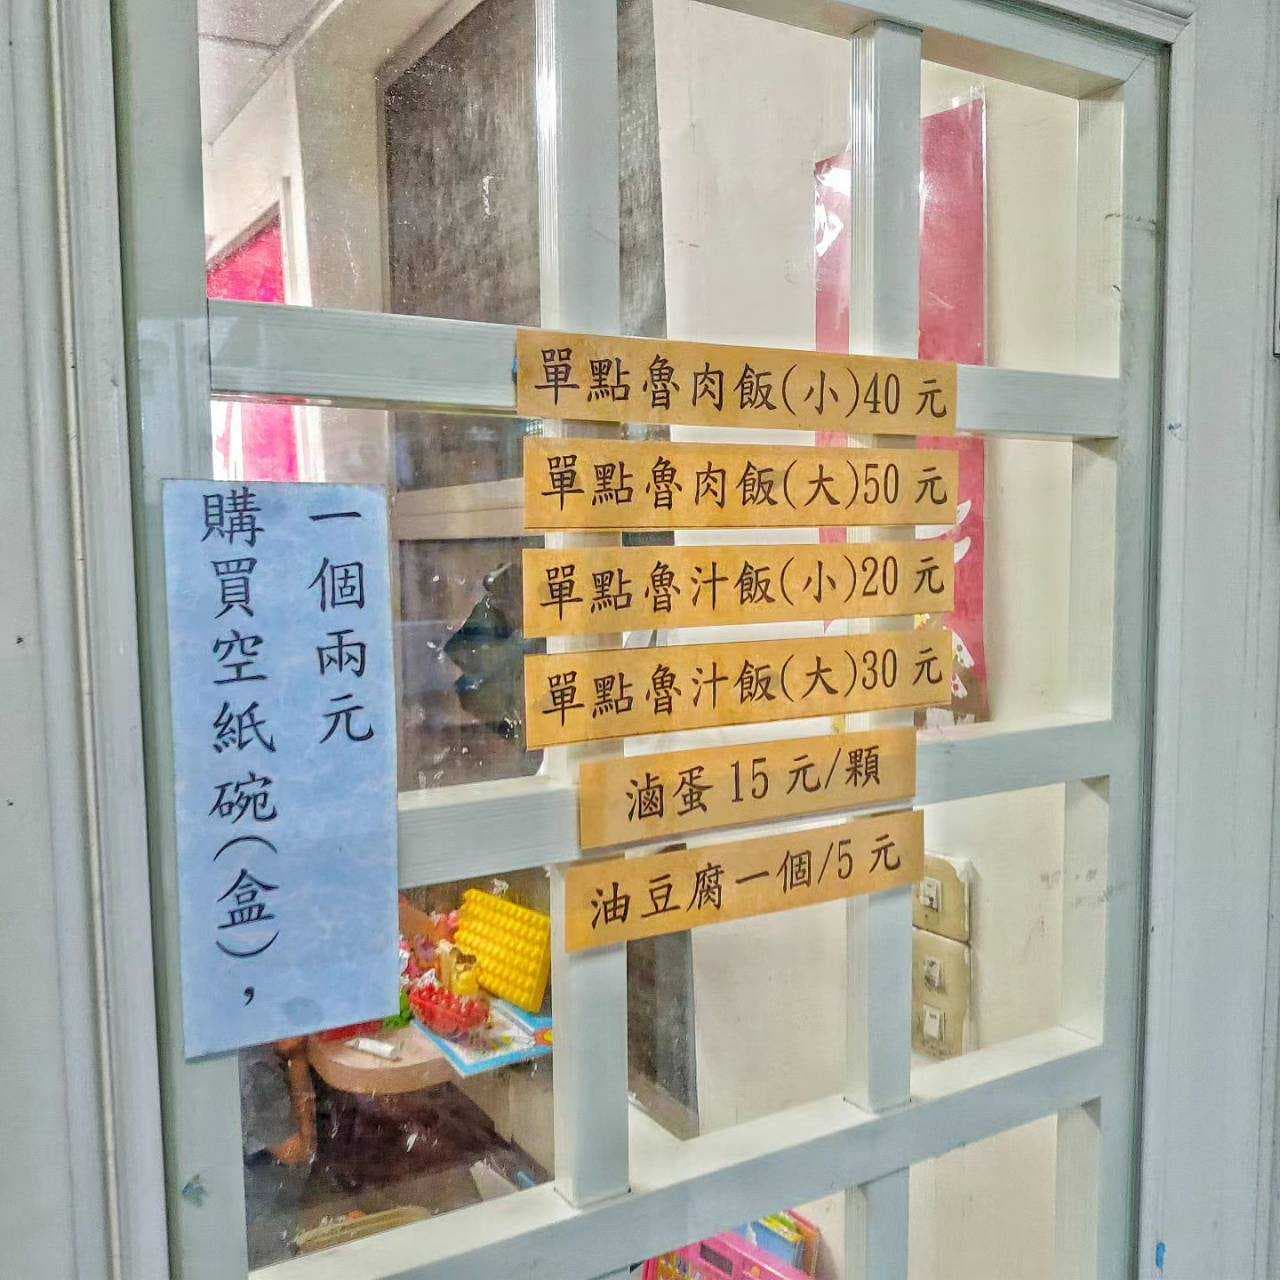 單點魯肉飯(小)40 元
單點魯肉飯(大)50 元
單點魯汁飯(小)20 元
單點魯汁飯(大)30 元
滷蛋 15 元/顆
油豆腐一個/5 元
一個兩元
購買空紙碗(盒)，